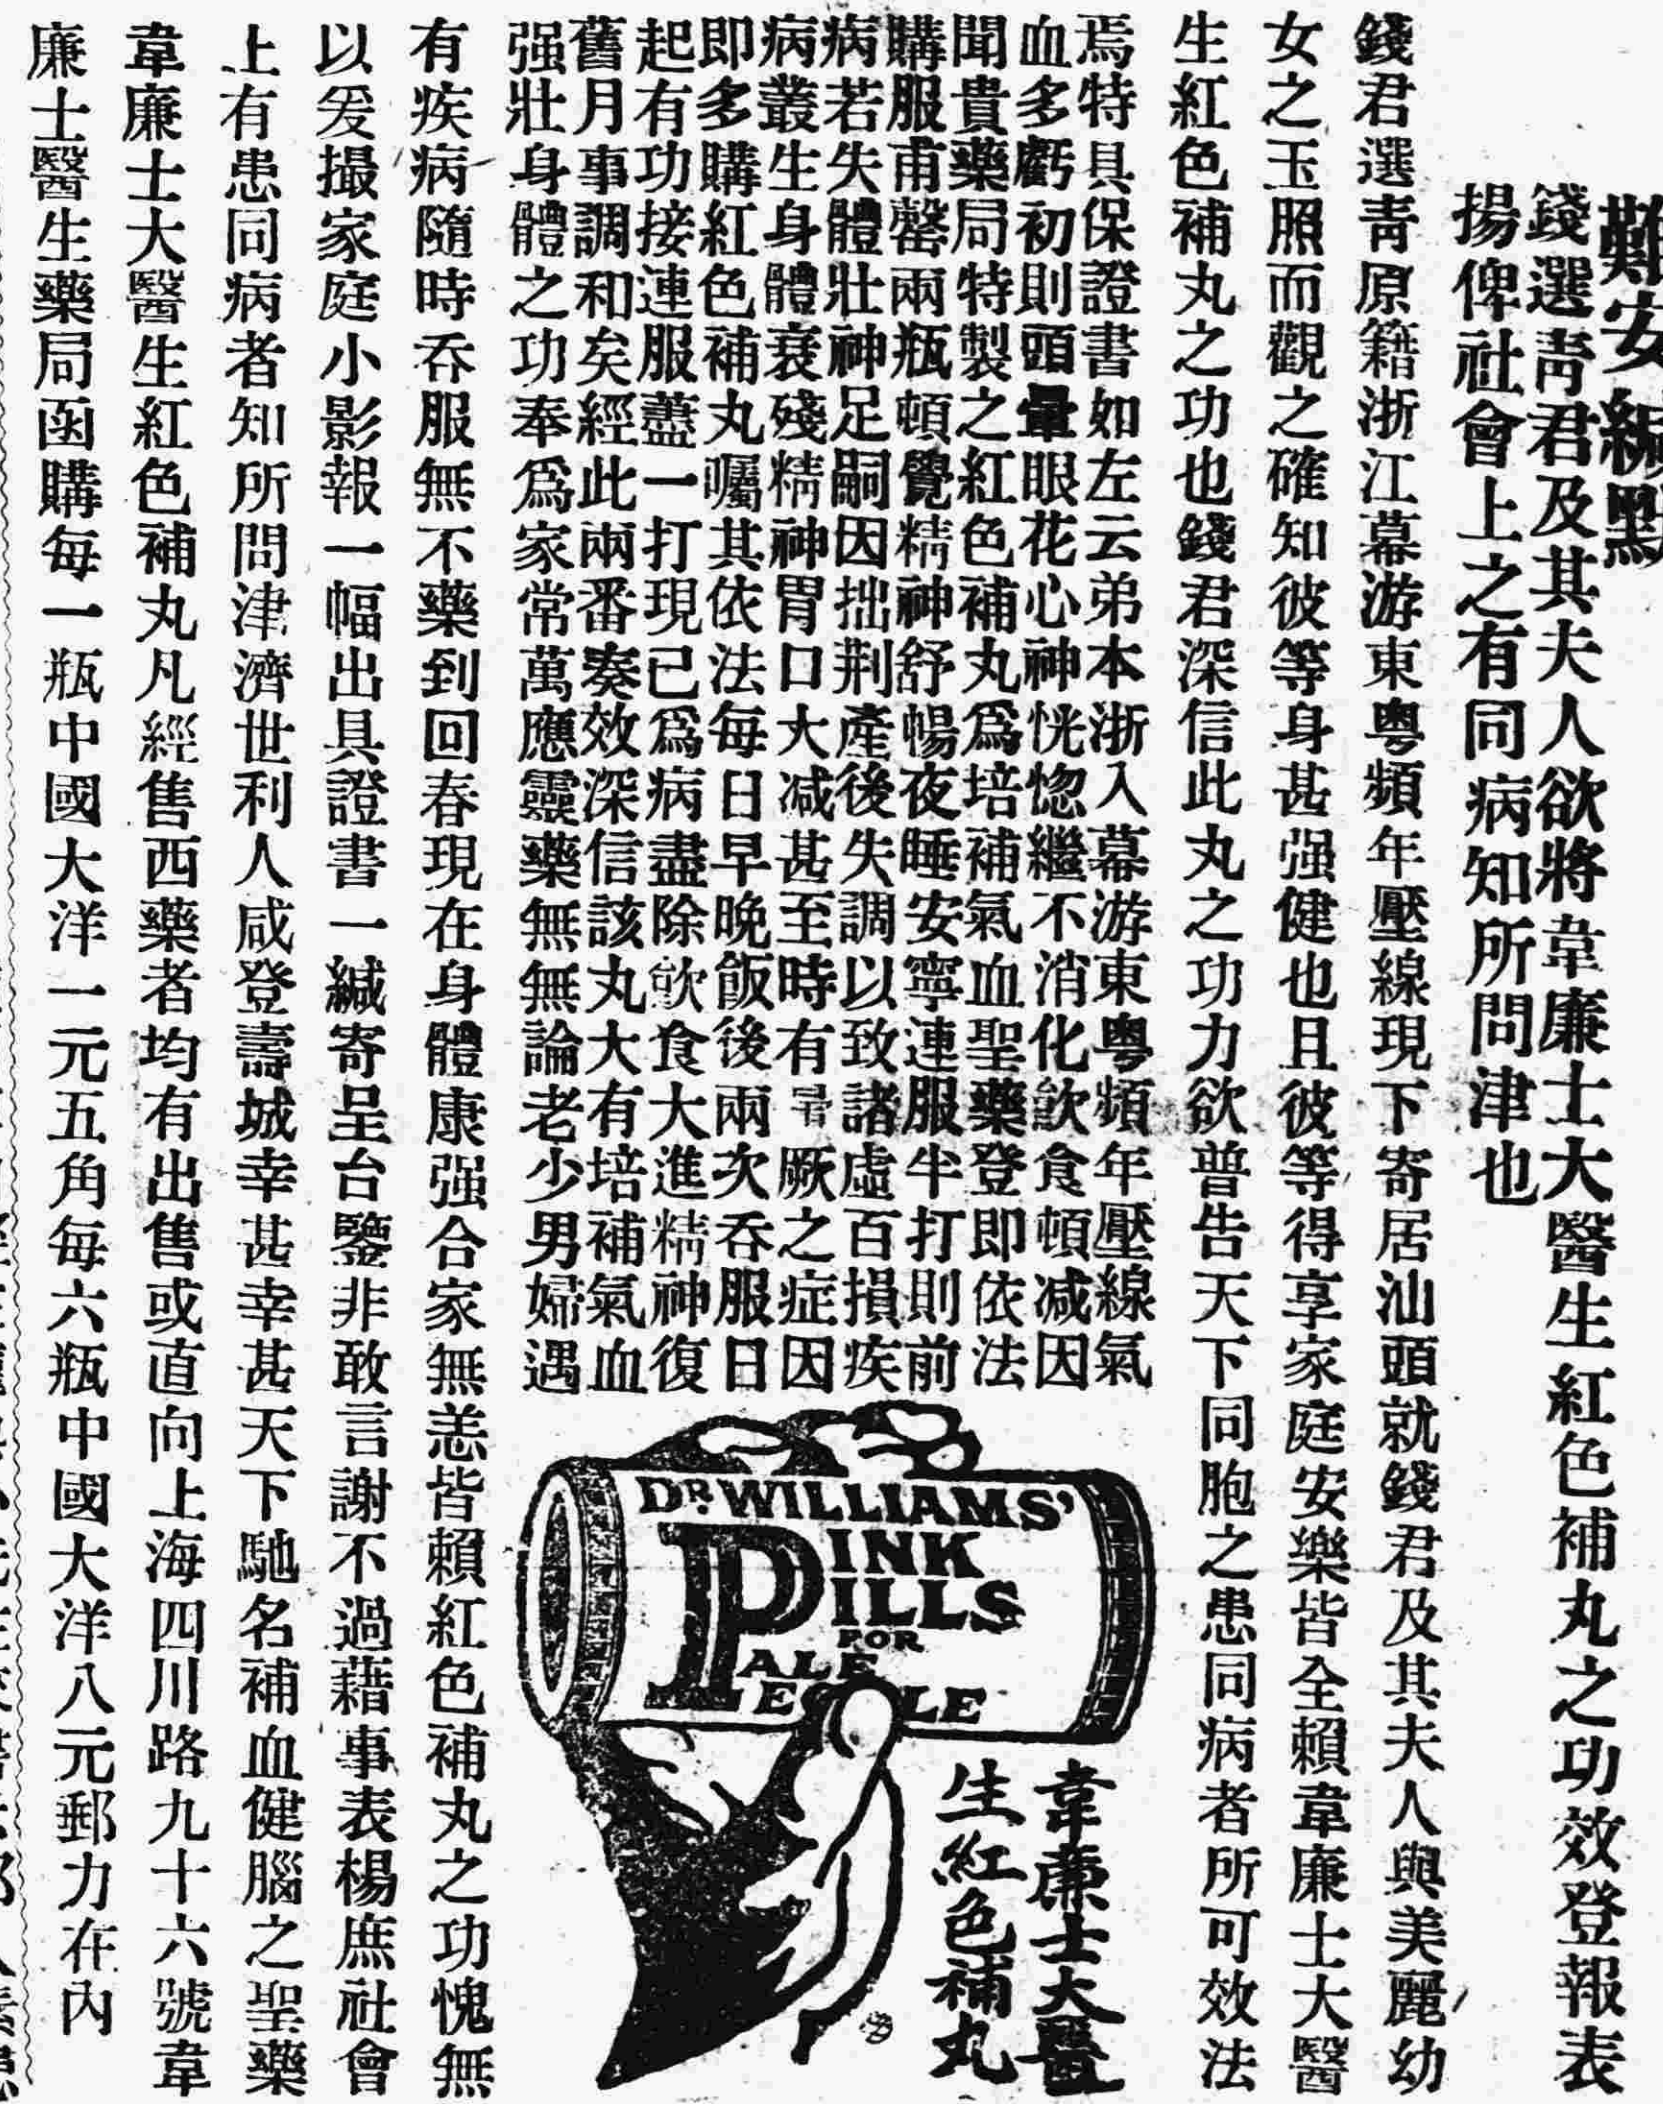 難安緘默
錢選青君及其夫人欲將韋廉士大醫生紅色補丸之功效登報表
揚俾社會上之有同病知所問津也
錢君選青原籍浙江幕游東粵頻年壓線現下寄居汕頭就錢君及其夫人與美麗幼
女之玉照而觀之確知彼等身甚强健也且彼等得享家庭安樂皆全賴韋廉士大醫
生紅色補丸之功也錢君深信此丸之功力欲普告天下同胞之患同病者所可效法
焉特具保證書如左云弟本浙入幕游東粵頻年壓線氣
血多虧初則頭暈眼花心神恍惚繼不消化飲食頓减因
聞貴藥局特製之紅色補丸爲培補氣血聖藥登即依法
購服甫罄兩瓶頓覺精神舒暢夜睡安寧連服半打則前
病若失體壯神足嗣因拙荆產後失調以致諸虛百損疾
病叢生身體衰殘精神胃口大减甚至時有厥之症因
即多購紅色補丸囑其依法每日早晚飯後兩次吞服日
起有功接連服藎一打現已爲病盡除飲食大進精神復
舊月事調和矣經此兩番奏效深信該丸大有培補氣血
强壯身體之功奉爲家常萬應靈藥無無論老少男婦遇
有疾病隨時吞服無不藥到回春現在身體康强合家無恙皆賴紅色補丸之功愧無
以爰撮家庭小影報一幅出具證書一緘寄呈台鑒非敢言謝不過藉事表楊庶社會
上有患同病者知所問津濟世利人咸登壽城幸甚幸甚天下馳名補血健腦之聖藥
韋廉士大醫生紅色補丸凡經售西藥者均有出售或直向上海四川路九十六號韋
廉士醫生藥局函購每一瓶中國大洋一元五角每六瓶中國大洋八元郵力在內
DR. WILLIAMS'
PINK
PILLS
FOR
PALE
PEOPLE
韋廉士大醫
生紅色補丸